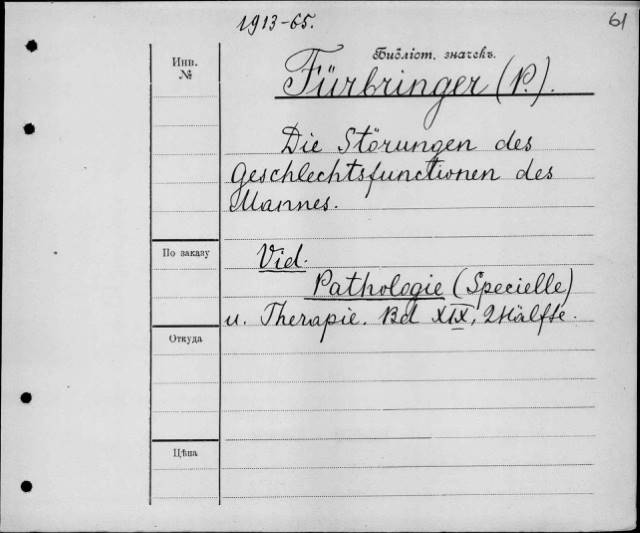 1913-65.
61
Инв.
№
Библіот. значекъ.
Fürbringer (P.).
Die Störungen des
Geschlechtsfunctionen des
Mannes.
По заказу
Vid.
Pathologie (Specielle)
u. Therapie. Bd XIX, 2 Hälfte.
Откуда
Цѣна